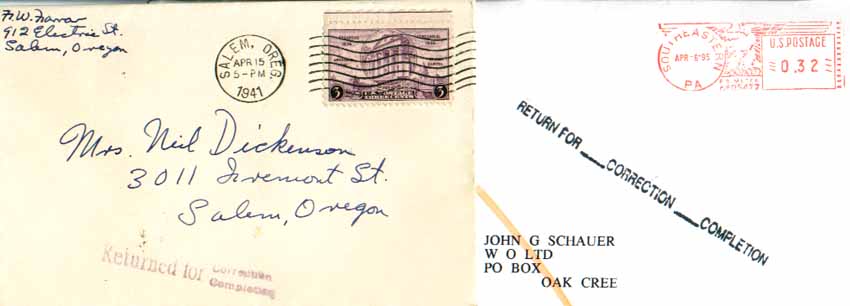 F.W. Farrar
912 Electric St.
Salem, Oregon
SALEM, OREG.
APR 15
5-PM
1941
3
3
Mrs. Neil Dickenson
3011 Fremont St.
Salem, Oregon
Returned for Correction
Completion
SOUTHEASTERN
APR-6'95
PA
U.S. POSTAGE
0.32
RETURN FOR ___CORRECTION ___COMPLETION
JOHN G SCHAUER
W O LTD
PO BOX
OAK CREE